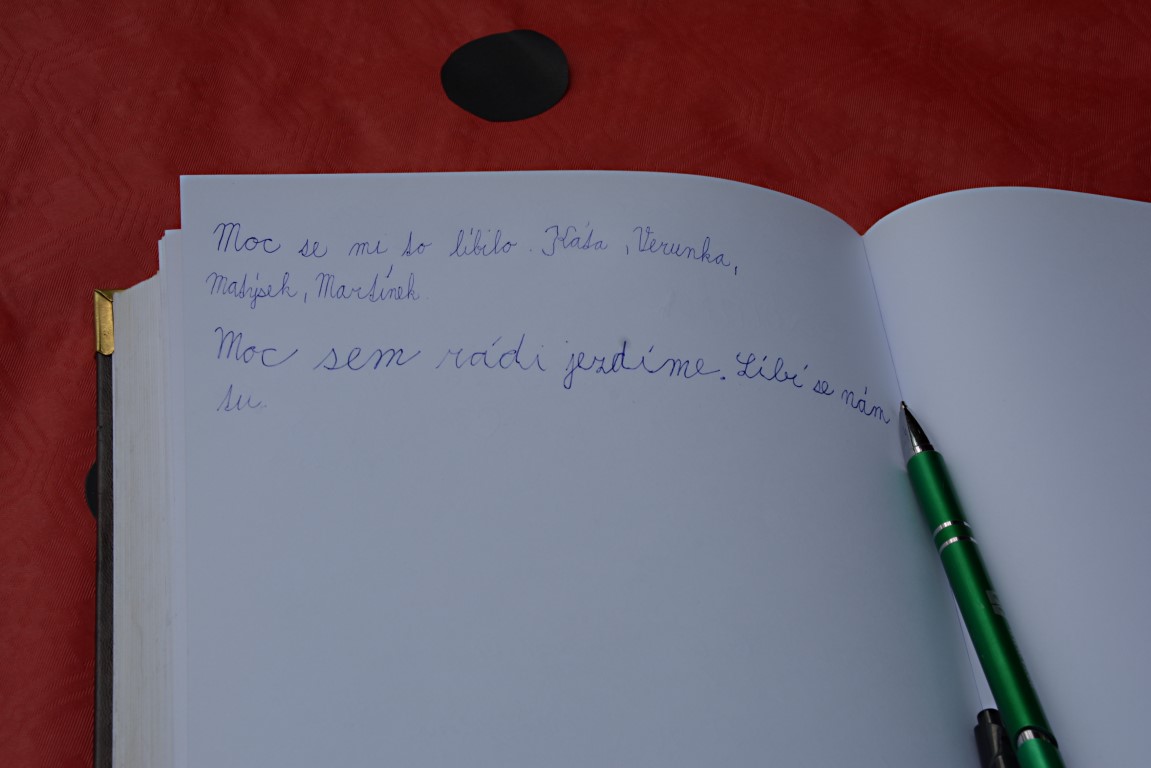 Moc se mi to líbilo. Káta, Verunka,
Matýsek, Martínek
Moc sem rádi jezdíme. Líbí se nám
tu.